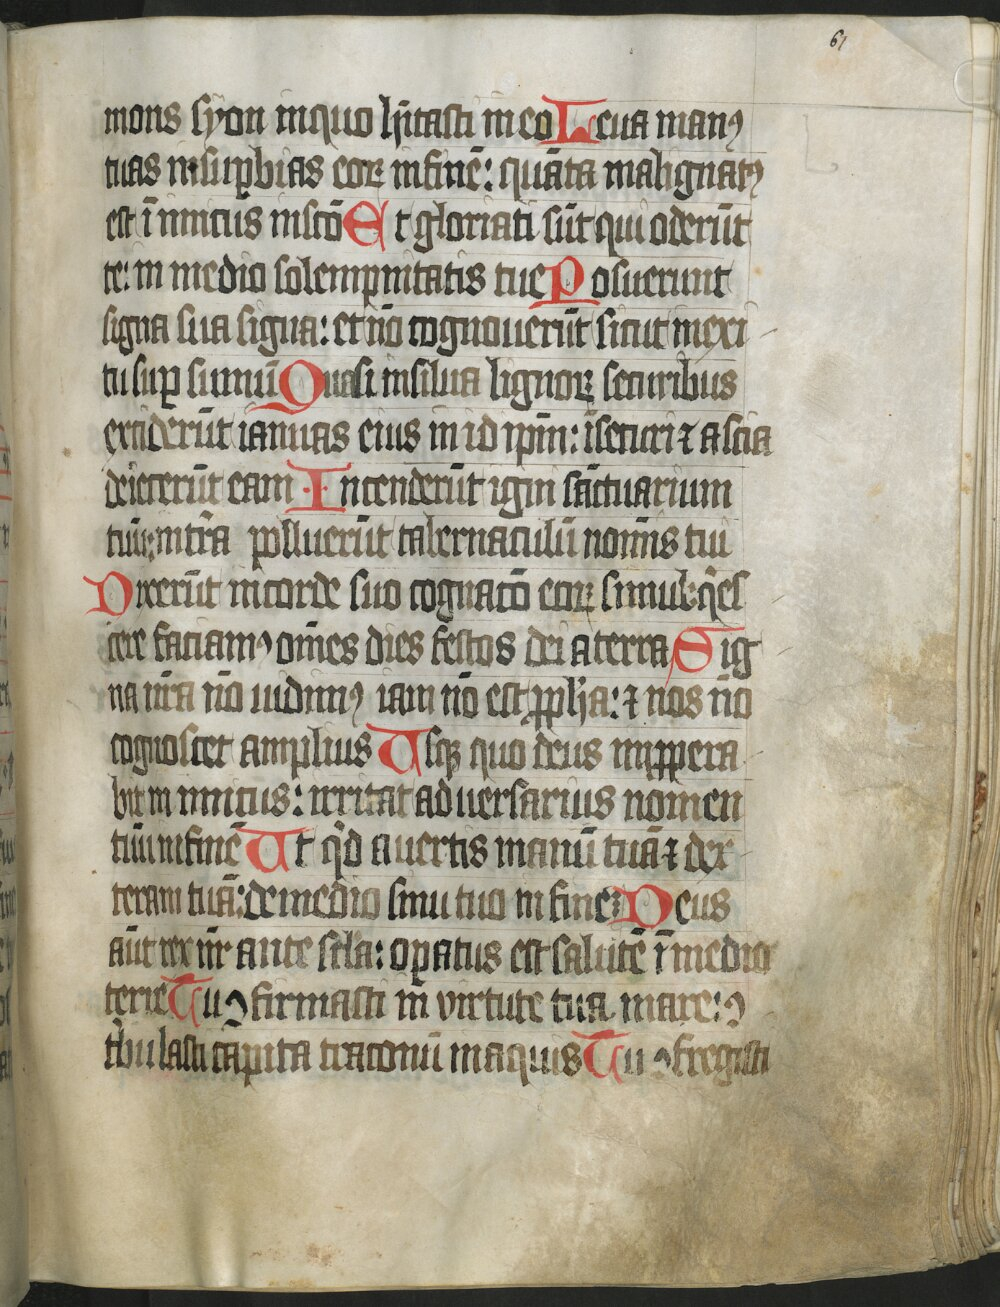 61
mons syon inquo hitasti in eo Leua manꝰ
tuas insupbias eoꝝ in finē: quāta malignatꝰ
est īnimicus in scō Et gloriati sūt qui oderūt
te: in medio solempnitatis tue Posuerunt
signa sua signa: et nō cognouerūt sicut in exi
tu suꝑ sūmū Quasi in silua lignoꝝ securibus
exciderūt ianuas eius in id ipm̄: ī securi ⁊ ascia
deiecerūt eam Incenderūt igni sāctuarium
tuū: in tr̄a polluerūt tabernaculū nomīs tui
Dixerūt in corde suo cognatō eoꝝ simul: q̄es
cere faciamꝰ om̄es dies festos dei a terra Sig
na nr̄a nō uidimꝰ iam nō est ꝓpha: ⁊ nos nō
cognoscet amplius Usqꝫ quo deus impropera
bit inimicus: irritat aduersarius nomen
tuū in finē Ut qd auertis manū tuā ⁊ dex
teram tuā: de medio sinu tuo in finē Deus
aūt rex nr̄ ante scl̄a: oꝑatus est salutē ī medio
terre Tu ꝯfirmasti in virtute tua mare: ꝯ
tbulasti capita draconū in aquis Tu ꝯfregisti